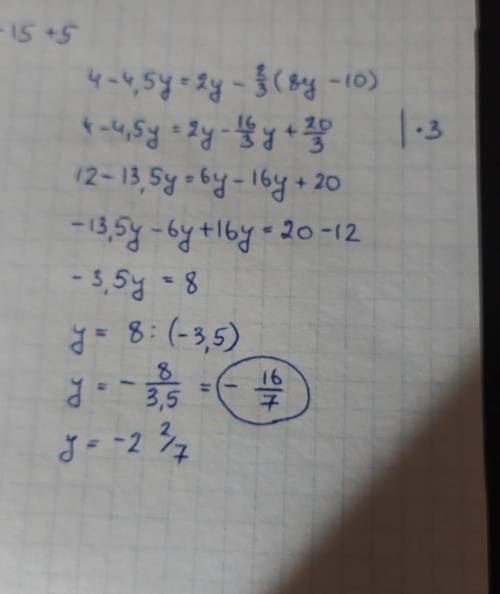 -15 +5
4 - 4,5y = 2y - 2/3 (8y - 10)
4 - 4,5y = 2y - 16/3 y + 20/3 | · 3
12 - 13,5y = 6y - 16y + 20
-13,5y - 6y + 16y = 20 - 12
-3,5y = 8
y = 8 : (-3,5)
y = - 8/3,5 = - 16/7
y = -2 2/7